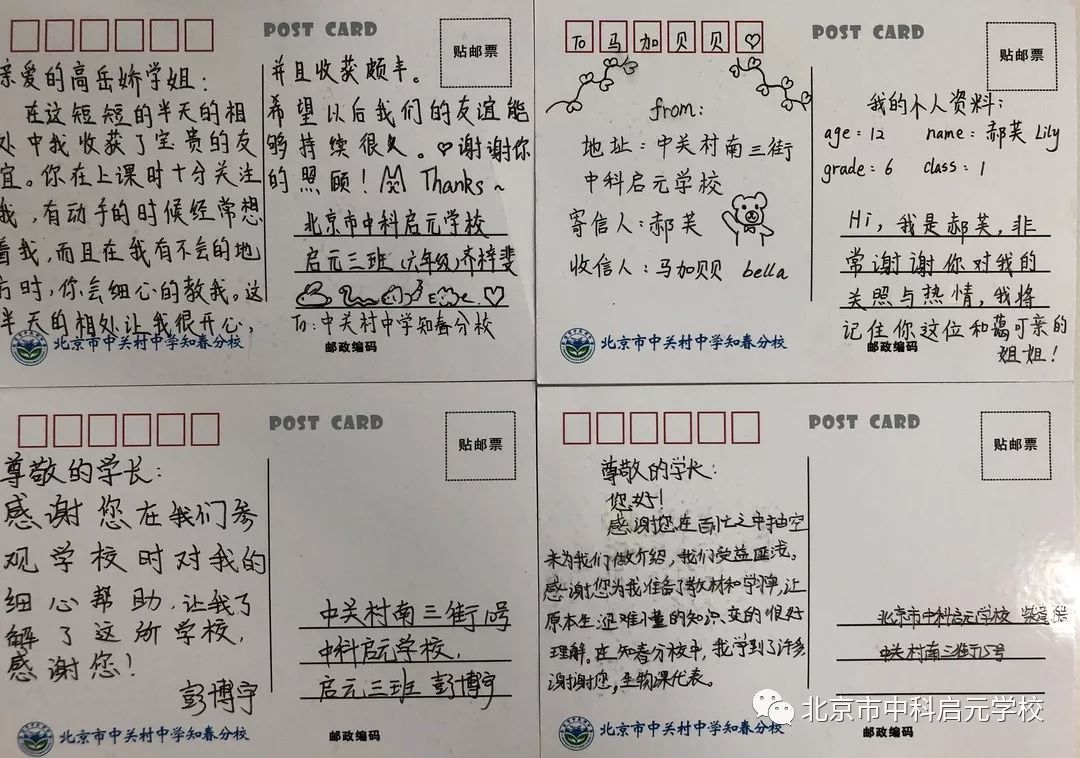 POST CARD
贴邮票
亲爱的高岳娇学姐:
在这短短的半天的相
处中我收获了宝贵的友
谊。你在上课时十分关注
我,有动手的时候经常想
着我,而且在我有不会的地
方时,你会细心的教我。这
半天的相处让我很开心,
并且收获颇丰。
希望以后我们的友谊能
够持续很久。♡谢谢你
的照顾! Thanks~
北京市中科启元学校
启元三班(六年级)齐梓斐
To:中关村中学知春分校
北京市中关村中学知春分校
邮政编码
To 马加贝贝♡
POST CARD
贴邮票
from:
地址:中关村南三街
中科启元学校
寄信人:郝芙
收信人:马加贝贝 bella
我的个人资料:
age:12 name:郝芙 Lily
grade:6 class:1
Hi,我是郝芙,非
常谢谢你对我的
关照与热情,我将
记住你这位和蔼可亲的
姐姐!
北京市中关村中学知春分校
邮政编码
POST CARD
贴邮票
尊敬的学长:
感谢您在我们参
观学校时对我的
细心帮助,让我了
解了这所学校,
感谢您!
彭博宇
中关村南三街15号
中科启元学校,
启元三班 彭博宇
北京市中关村中学知春分校
邮政编码
POST CARD
贴邮票
尊敬的学长:
您好!
感谢您在百忙之中抽空
来为我们做介绍,我们受益匪浅。
感谢您为我准备了教材和学牌,让
原本生涩难懂的知识,变的很好
理解。在知春分校中,我学到了许多
谢谢您,生物课代表。
北京市中科启元学校
中关村南三街15号
北京市中关村中学知春分校
邮政编码
北京市中科启元学校